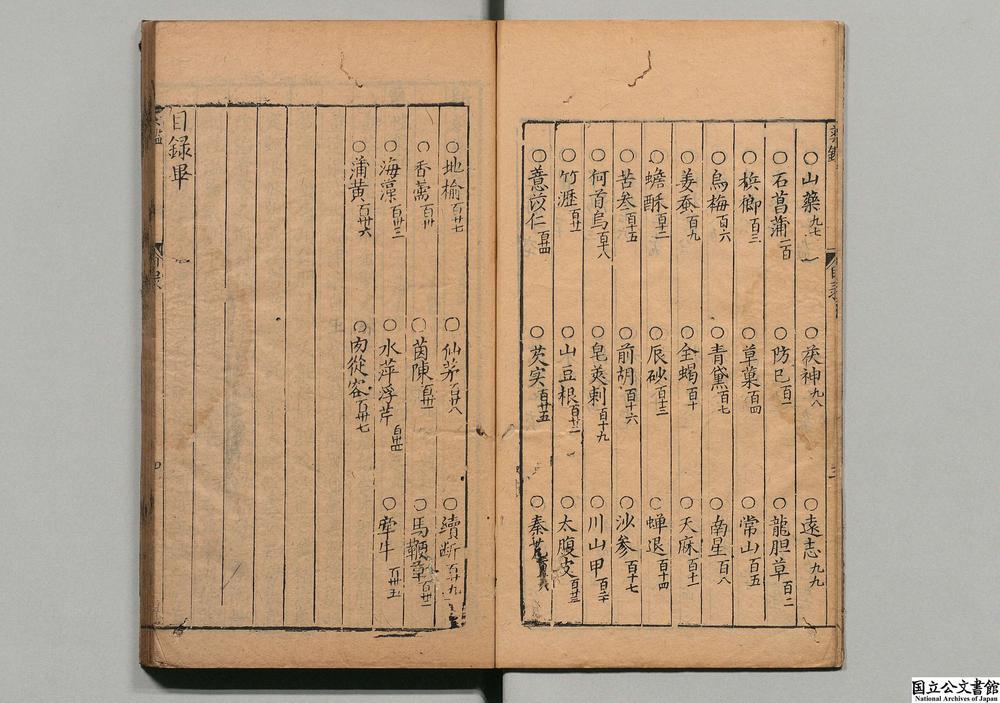 ○山藥九七 ○茯神九八 ○遠志九九
○石菖蒲一百 ○防已百一 ○龍胆草百二
○梹榔百三 ○草菓百四 ○常山百五
○烏梅百六 ○青黛百七 ○南星百八
○姜蚕百九 ○全蝎百十 ○天麻百十一
○蟾酥百十二 ○辰砂百十三 ○蟬退百十四
○苦参百十五 ○前胡百十六 ○沙参百十七
○何首烏百十八 ○皂莢刺百十九 ○川山甲百二十
○竹瀝百廿一 ○山豆根百廿二 ○大腹皮百廿三
○薏苡仁百廿四 ○芡实百廿五 ○秦艽
○地榆百廿七 ○仙茅百廿八 ○續断百廿九
○香薷百卅 ○茵陳百卅一 ○馬鞭草
○海藻百卅三 ○水萍浮芹百卅四 ○牽牛百卅五
○蒲黄百卅六 ○肉從容百卅七
目録畢
国立公文書館
National Archives of Japan